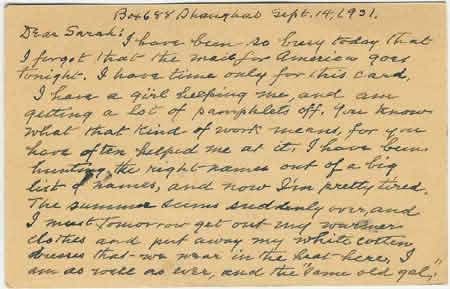 Box 688 Shanghai Sept. 14, 1931.
Dear Sarah:
I have been so busy today that
I forgot that the mail for America goes
tonight. I have time only for this card.
I have a girl helping me, and am
getting a lot of pamphlets off. You know
what that kind of work means, for you
have often helped me at it. I have been
hunting the right names out of a big
list of names, and now I'm pretty tired.
The summer seems suddenly over, and
I must tomorrow get out my warmer
clothes and put away my white cotton
dresses that we wear in the heat here. I
am as well as ever, and the "same old gal."